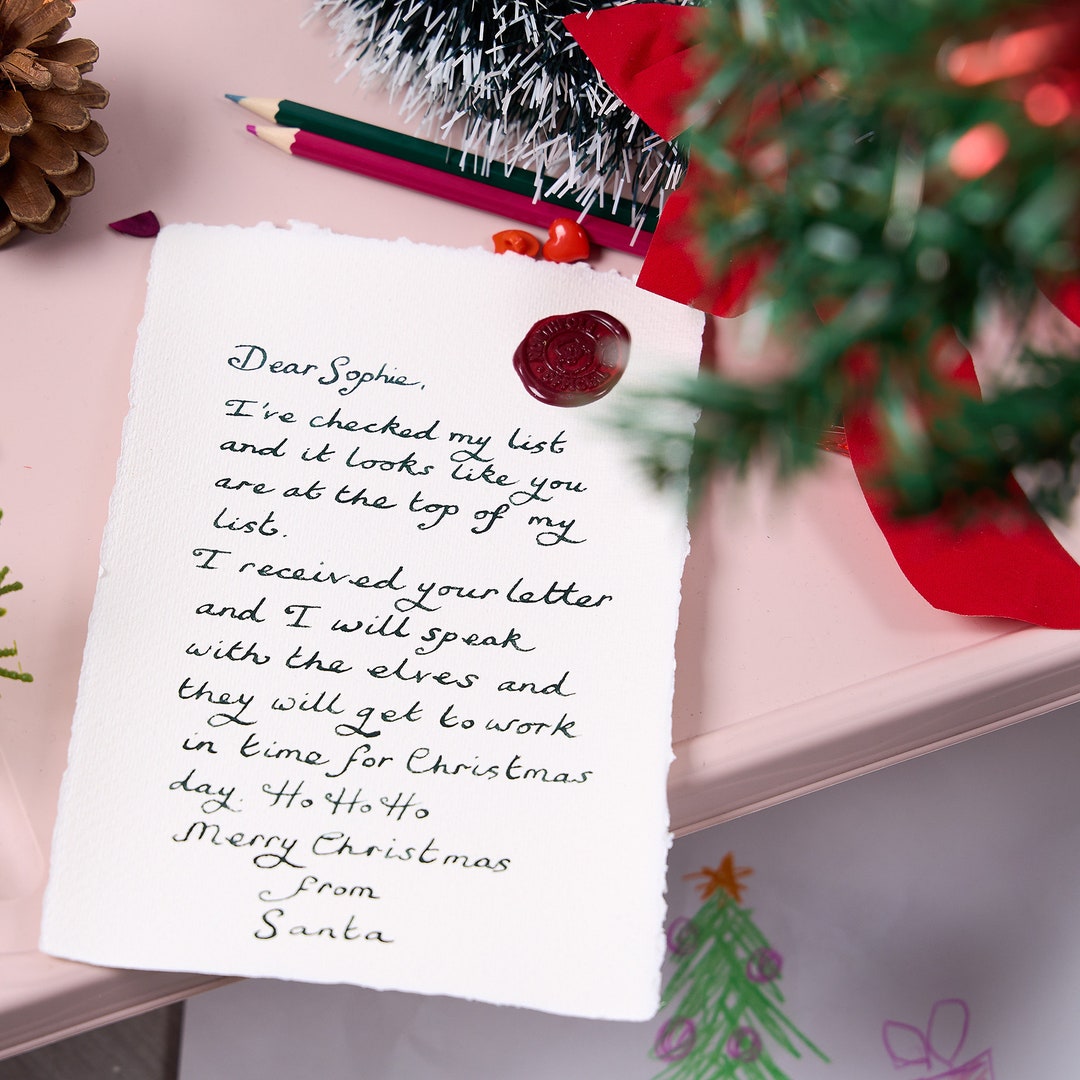 Dear Sophie,
I've checked my list
and it looks like you
are at the top of my
list.
I received your letter
and I will speak
with the elves and
they will get to work
in time for Christmas
day. Ho Ho Ho
Merry Christmas
from
Santa